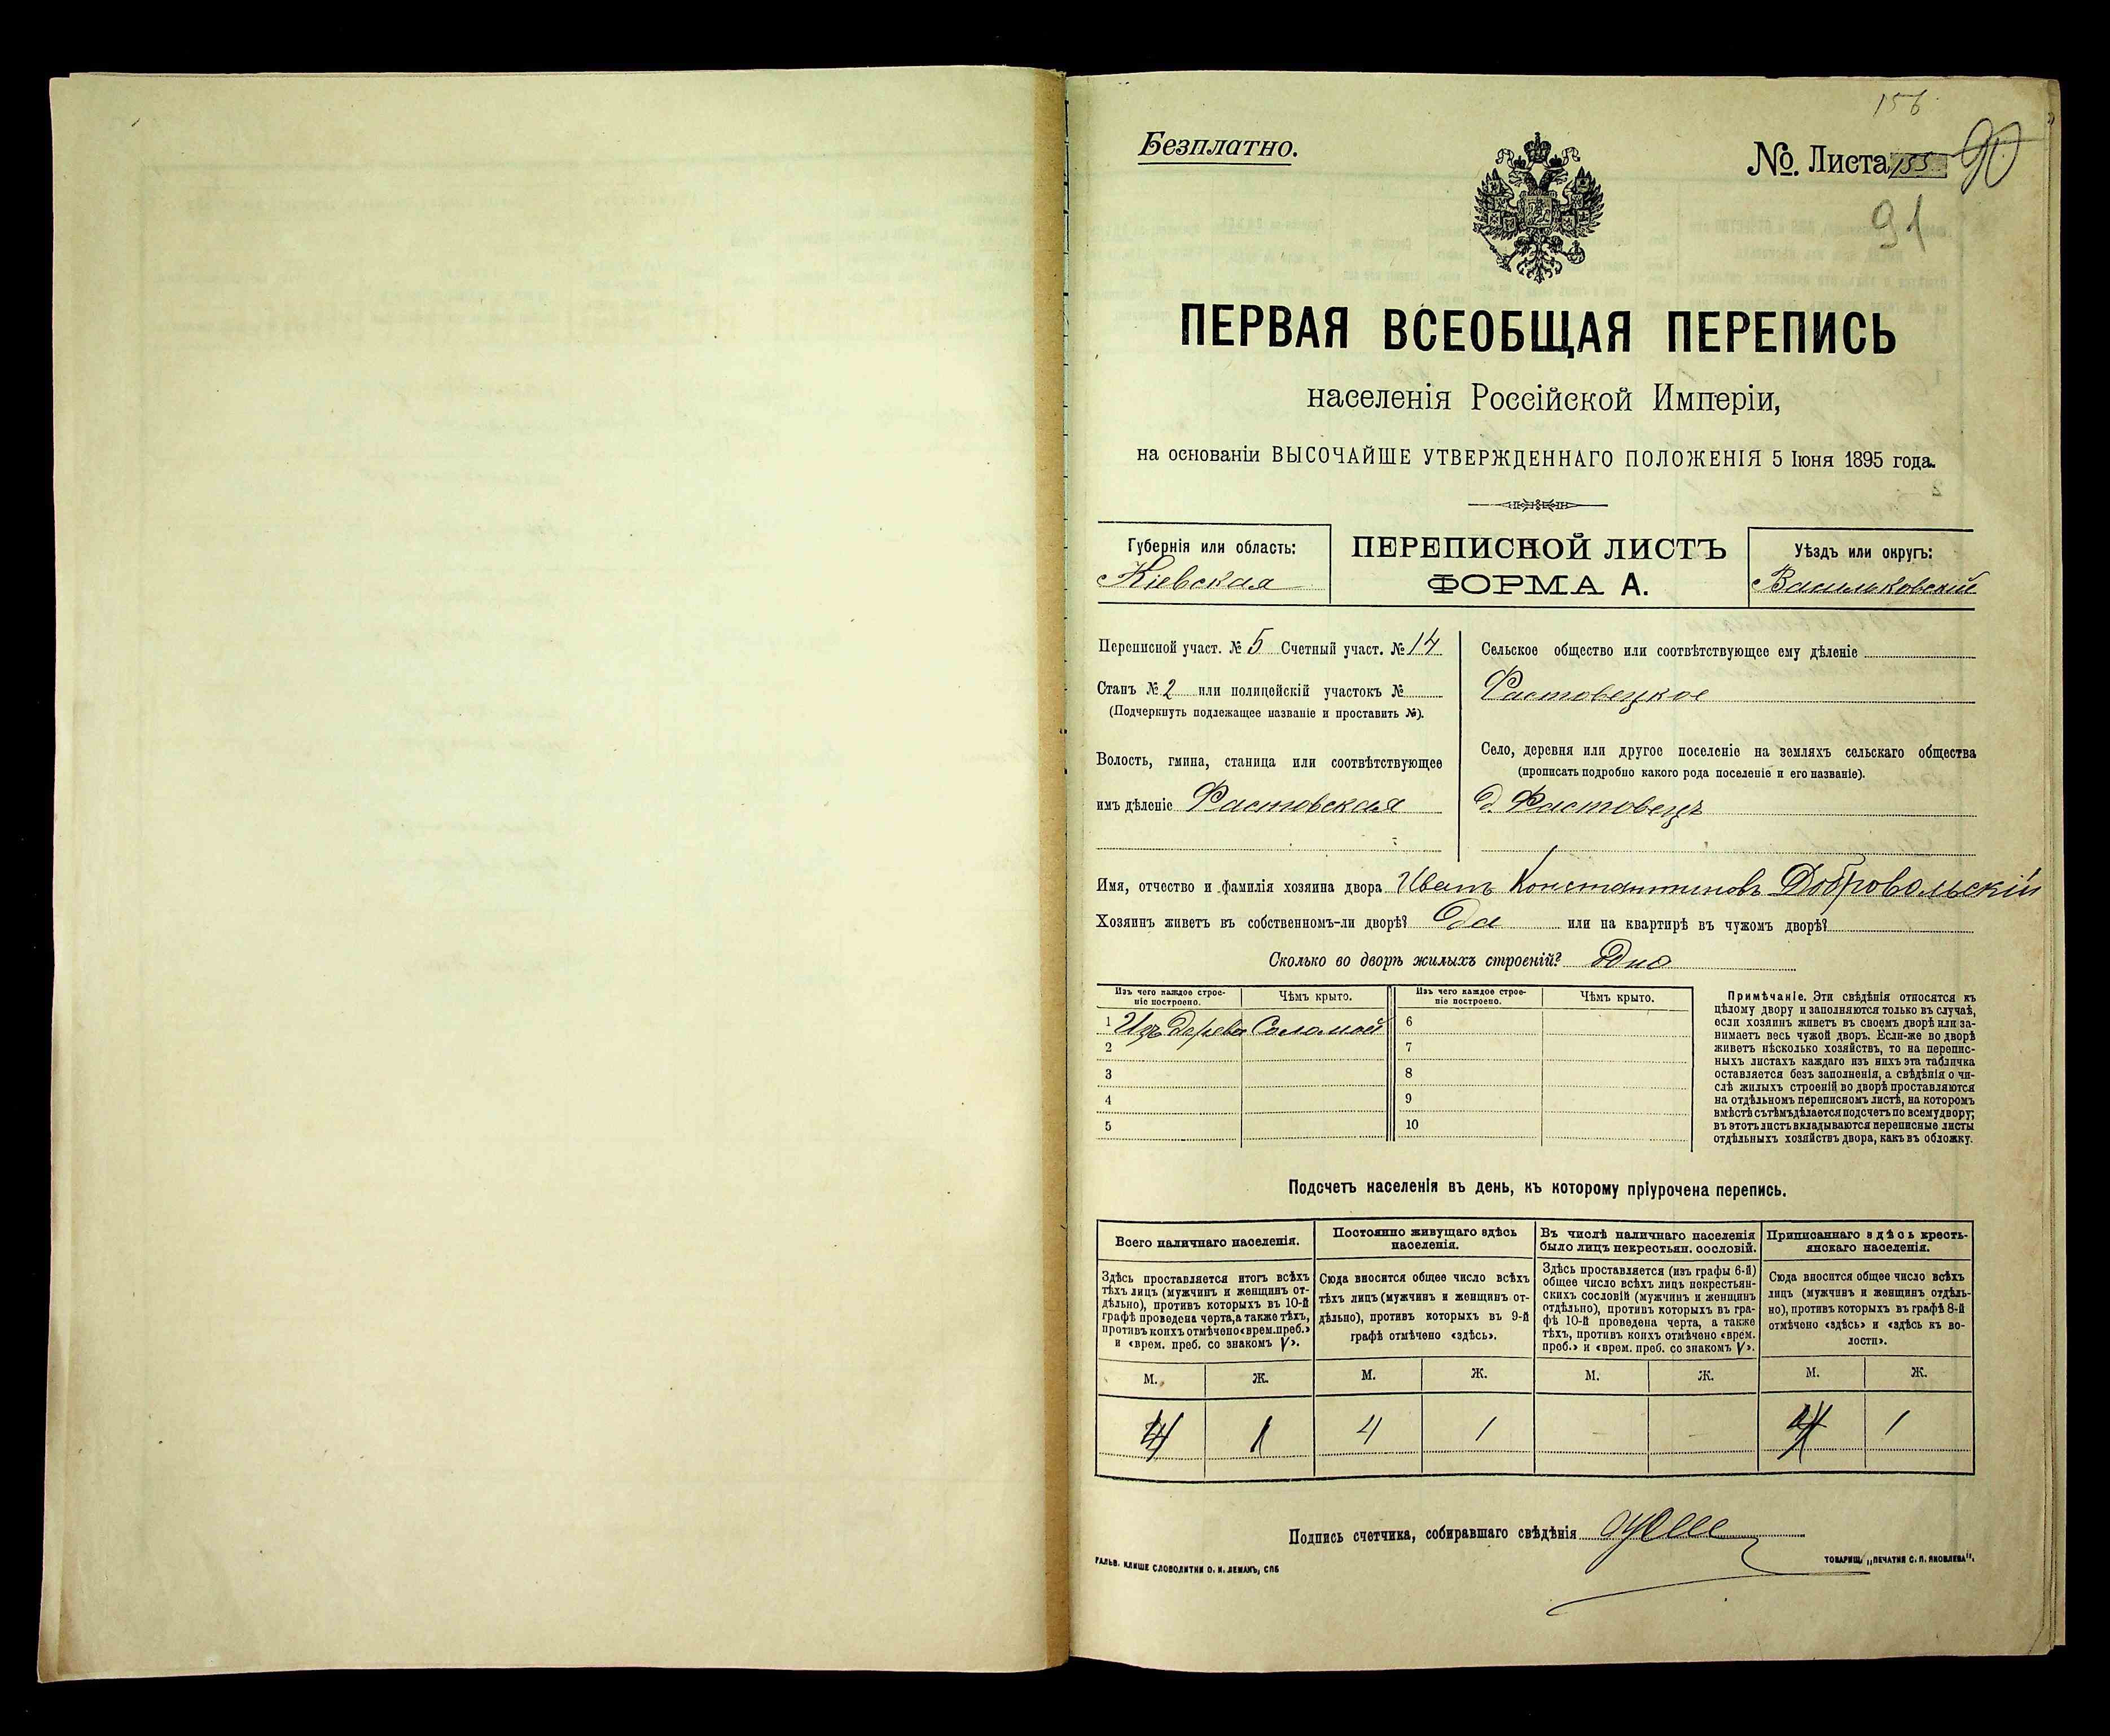 156
Безплатно.
№. Листа 155 90
91
ПЕРВАЯ ВСЕОБЩАЯ ПЕРЕПИСЬ
населенія Россійской Имперіи,
на основаніи ВЫСОЧАЙШЕ УТВЕРЖДЕННАГО ПОЛОЖЕНІЯ 5 Іюня 1895 года.
Губернія или область:
Кіевская
ПЕРЕПИСНОЙ ЛИСТЪ
ФОРМА А.
Уѣздъ или округъ:
Васильковскій
Переписной участ. № 5 Счетный участ. № 14
Станъ № 2 или полицейскій участокъ №
(Подчеркнуть подлежащее названіе и проставить №).
Волость, гмина, станица или соотвѣтствующее
имъ дѣленіе Фастовская
Сельское общество или соотвѣтствующее ему дѣленіе
Фастовецкое
Село, деревня или другое поселеніе на земляхъ сельскаго общества
(прописать подробно какого рода поселеніе и его названіе).
д. Фастовецъ
Имя, отчество и фамилія хозяина двора Иванъ Константиновъ Добровольскій
Хозяинъ живетъ въ собственномъ-ли дворѣ? Да или на квартирѣ въ чужомъ дворѣ?
Сколько во дворѣ жилыхъ строеній? Одно
Изъ чего каждое строе-
ніе построено.
Чѣмъ крыто.
Изъ чего каждое строе-
ніе построено.
Чѣмъ крыто.
1 Изъ Дерева Соломой 6
2 7
3 8
4 9
5 10
Примѣчаніе. Эти свѣдѣнія относятся къ
цѣлому двору и заполняются только въ случаѣ,
если хозяинъ живетъ въ своемъ дворѣ или за-
нимаетъ весь чужой дворъ. Если-же во дворѣ
живетъ нѣсколько хозяйствъ, то на перепис-
ныхъ листахъ каждаго изъ нихъ эта табличка
оставляется безъ заполненія, а свѣдѣнія о чи-
слѣ жилыхъ строеній во дворѣ проставляются
на отдѣльномъ переписномъ листѣ, на которомъ
вмѣстѣ съ тѣмъ дѣлается подсчетъ по всему двору;
въ этотъ листъ вкладываются переписные листы
отдѣльныхъ хозяйствъ двора, какъ въ обложку.
Подсчетъ населенія въ день, къ которому пріурочена перепись.
Всего наличнаго населенія.
Здѣсь проставляется итогъ всѣхъ
тѣхъ лицъ (мужчинъ и женщинъ от-
дѣльно), противъ которыхъ въ 10-й
графѣ проведена черта, а также тѣхъ,
противъ коихъ отмѣчено «врем. преб.»
и «врем. преб. со знакомъ V».
Постоянно живущаго здѣсь
населенія.
Сюда вносится общее число всѣхъ
тѣхъ лицъ (мужчинъ и женщинъ от-
дѣльно), противъ которыхъ въ 9-й
графѣ отмѣчено «здѣсь».
Въ числѣ наличнаго населенія
было лицъ некрестьян. сословій.
Здѣсь проставляется (изъ графы 6-й)
общее число всѣхъ лицъ некрестьян-
скихъ сословій (мужчинъ и женщинъ
отдѣльно), противъ которыхъ въ гра-
фѣ 10-й проведена черта, а также
тѣхъ, противъ коихъ отмѣчено «врем.
преб.» и «врем. преб. со знакомъ V».
Приписаннаго здѣсь кресть-
янскаго населенія.
Сюда вносится общее число всѣхъ
лицъ (мужчинъ и женщинъ отдѣль-
но), противъ которыхъ въ графѣ 8-й
отмѣчено «здѣсь» и «здѣсь къ во-
лости».
М. Ж. М. Ж. М. Ж. М. Ж.
4 1 4 1 - - 4 1
Подпись счетчика, собиравшаго свѣдѣнія
ГАЛЬВ. КЛИШЕ СЛОВОЛИТНИ О. И. ЛЕМАНЪ, СПБ
ТОВАРИЩ. „ПЕЧАТНЯ С. П. ЯКОВЛЕВА".